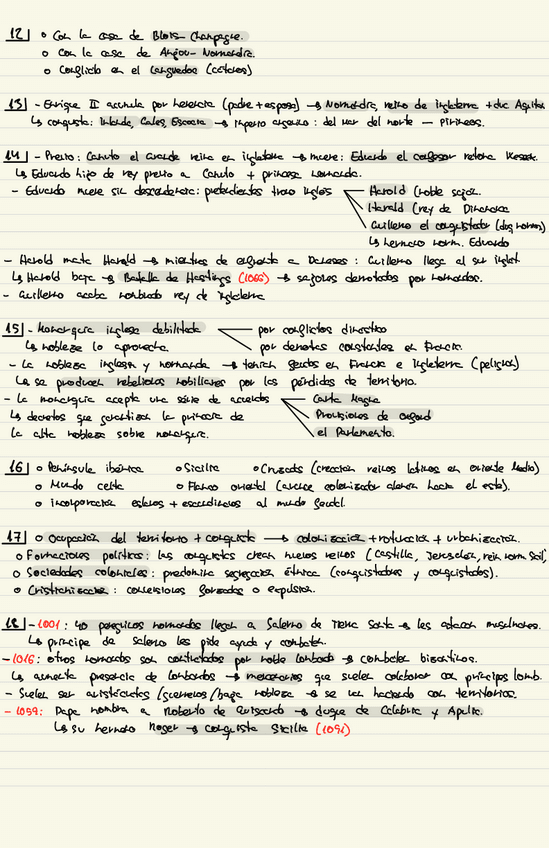 12 o Con la casa de Blois-Champagne.
o Con la casa de Anjou-Normandia.
o Conflicto en el Languedoc (cátaros)
13 - Enrique II acumula por herencia (padre + esposa) → Normandia, reino de inglaterra + duc Aquita
↳ conquista: Irlanda, Gales, Escocia → imperio angevino: del mar del norte — Pirineos.
14 - Previo: Canuto el Grande reina en inglaterra → muere: Eduardo el confesor retoma Wessex.
↳ Eduardo hijo de rey previo a Canuto + princesa normanda.
- Eduardo muere sin descendencia: pretendientes trono inglés
Harold (noble sajón.
Harald (rey de Dinamarca
Guillermo el conquistador (duq normand)
↳ hermano norm. Eduardo
- Harold mata Harald → mientras de enfrenta a Daneses: Guillermo llega al sur inglat
↳ Harold baja → Batalla de Hastings (1066) → sajones derrotados por normandos.
- Guillermo acaba nombrado rey de inglaterra
15 - Monarquia inglesa debilitada — por conflictos dinastico
↳ nobleza lo aprovecha. — por derrotas constantes en Francia.
- La nobleza inglesa y normanda → tenian feudos en Francia e inglaterra (peligros)
↳ se producen rebeliones nobiliares por las pérdidas de territorio.
- La monarquia acepta una série de acuerdos — Carta Magna
↳ decretos que garantizan la primacia de — Provisiones de Oxford
la alta nobleza sobre monarquia. — el Parlamento.
16 o Península ibérica o Sicilia o Cruzada (creacion reinos latinos en oriente Medio)
o Mundo celta o Flanco oriental (avance colonizador aleman hacia el este).
o incorporacion eslavos + escandinavos al mundo feudal.
17 o Ocupación del territorio + conquista → colonizacion + roturacion + urbanizacion.
o Formaciones politicas: las conquistas crean nuevos reinos (Castilla, Jerusalen, rein norm Sicil)
o Sociedades coloniales: predomina segregacion étnica (conquistadores y conquistados).
o Cristianizacion: conversiones forzadas o expulsion.
18 - 1001: 40 peregrinos normandos llegan a Salerno de Tierra Santa → les atacan musulmanes.
↳ principe de Salerno les pide ayuda y combaten.
- 1016: otros normandos son contratados por noble lombardo → combaten bizantinos.
↳ aumenta presencia de lombardos → mercenarios que suelen colaborar con principes lomb.
- Suelen ser aristócratas (guerreros/baja nobleza → se van haciendo con territorios.
- 1059: Papa nombra a Roberto de Guiscardo → duque de Calabria y Apulia.
↳ su hermano Roger → conquista Sicilia (1091)